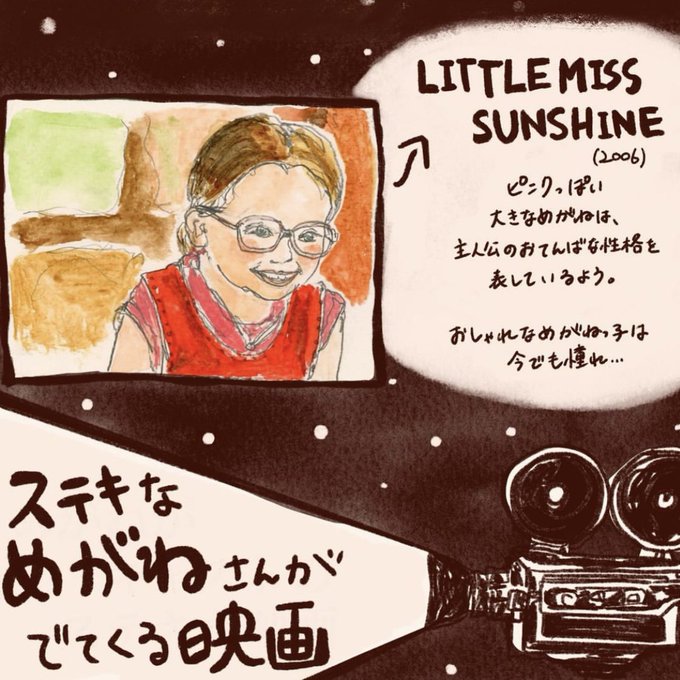 LITTLE MISS
SUNSHINE
(2006)
ピンクっぽい
大きなめがねは、
主人公のおてんばな性格を
表しているよう。
おしゃれなめがねっ子は
今でも憧れ…
ステキな
めがねさんが
でてくる映画